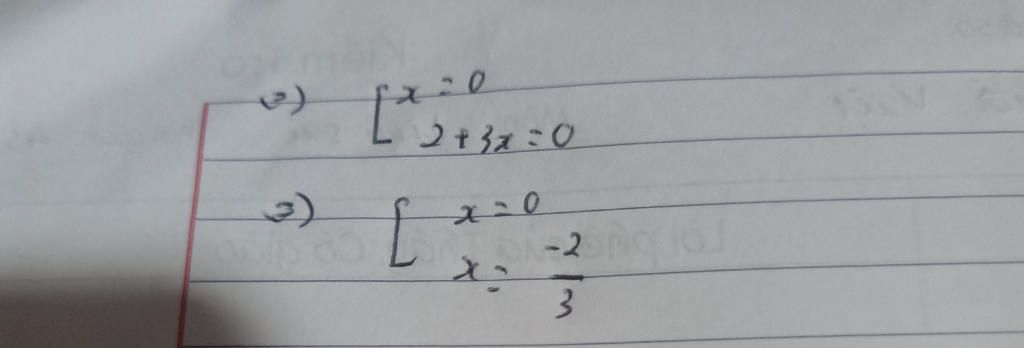 =>) [ x = 0
2 + 3x = 0
=>) [ x = 0
x = -2/3